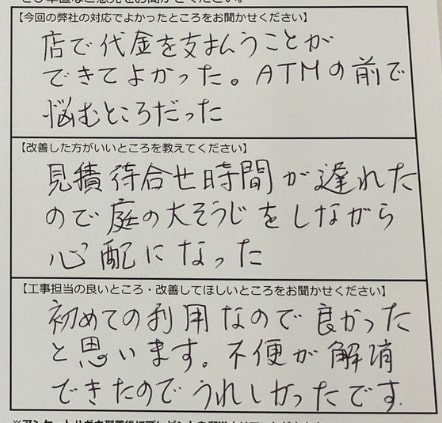 【今回の弊社の対応でよかったところをお聞かせください】
店で代金を支払うことが
できてよかった。ATMの前で
悩むところだった
【改善した方がいいところを教えてください】
見積待合せ時間が遅れた
ので庭の大そうじをしながら
心配になった
【工事担当の良いところ・改善してほしいところをお聞かせください】
初めての利用なので良かった
と思います。不便が解消
できたのでうれしかったです.